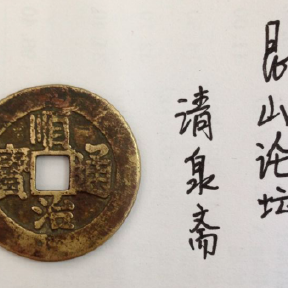 昆山论坛
清泉斋
順治通寶